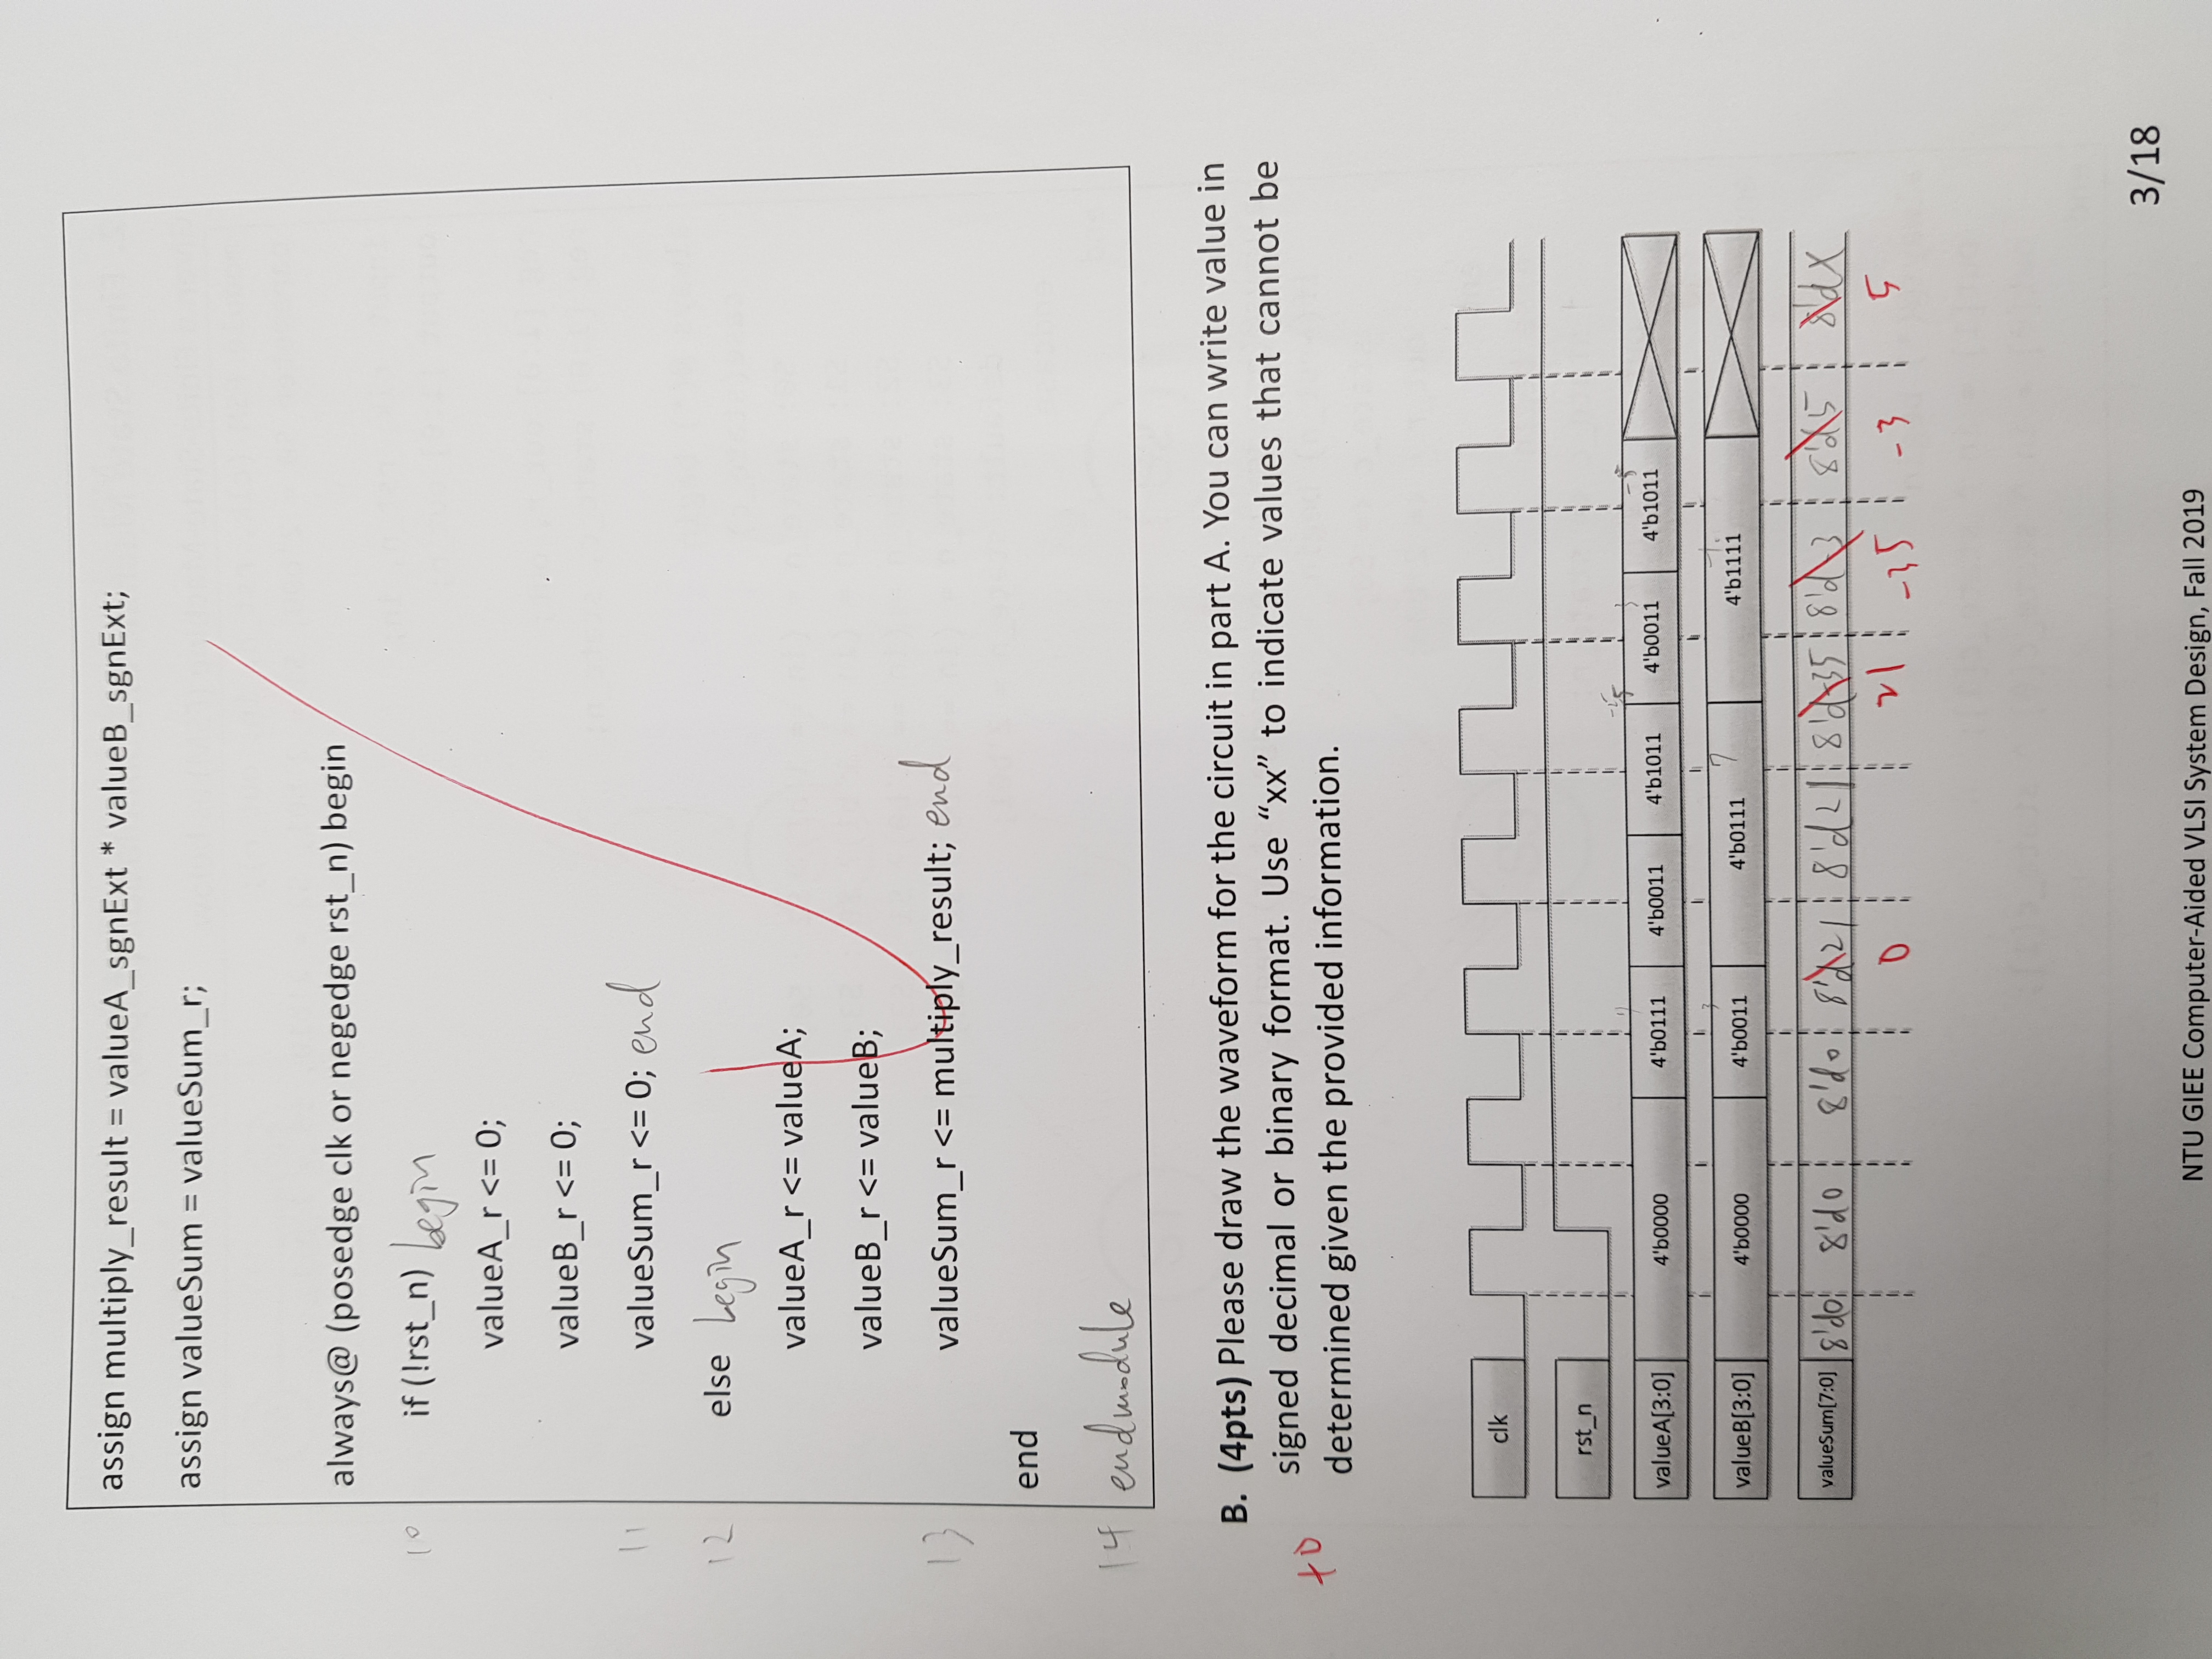 assign multiply_result = valueA_sgnExt * valueB_sgnExt;
assign valueSum = valueSum_r;
always@ (posedge clk or negedge rst_n) begin
10 if (!rst_n) begin
valueA_r <= 0;
valueB_r <= 0;
11 valueSum_r <= 0; end
12 else begin
valueA_r <= valueA;
valueB_r <= valueB;
13 valueSum_r <= multiply_result; end
end
14 endmodule
B. (4pts) Please draw the waveform for the circuit in part A. You can write value in
signed decimal or binary format. Use “xx” to indicate values that cannot be
+0 determined given the provided information.
clk
rst_n
7 -5 3 -5
valueA[3:0] 4'b0000 4'b0111 4'b0011 4'b1011 4'b0011 4'b1011
3 7 -1
valueB[3:0] 4'b0000 4'b0011 4'b0111 4'b1111
valueSum[7:0] 8'd0 8'd0 8'd0 8'd21 8'd21 8'd-35 8'd-3 8'd5 8'dX
0 21 -35 -3 5
3/18
NTU GIEE Computer-Aided VLSI System Design, Fall 2019